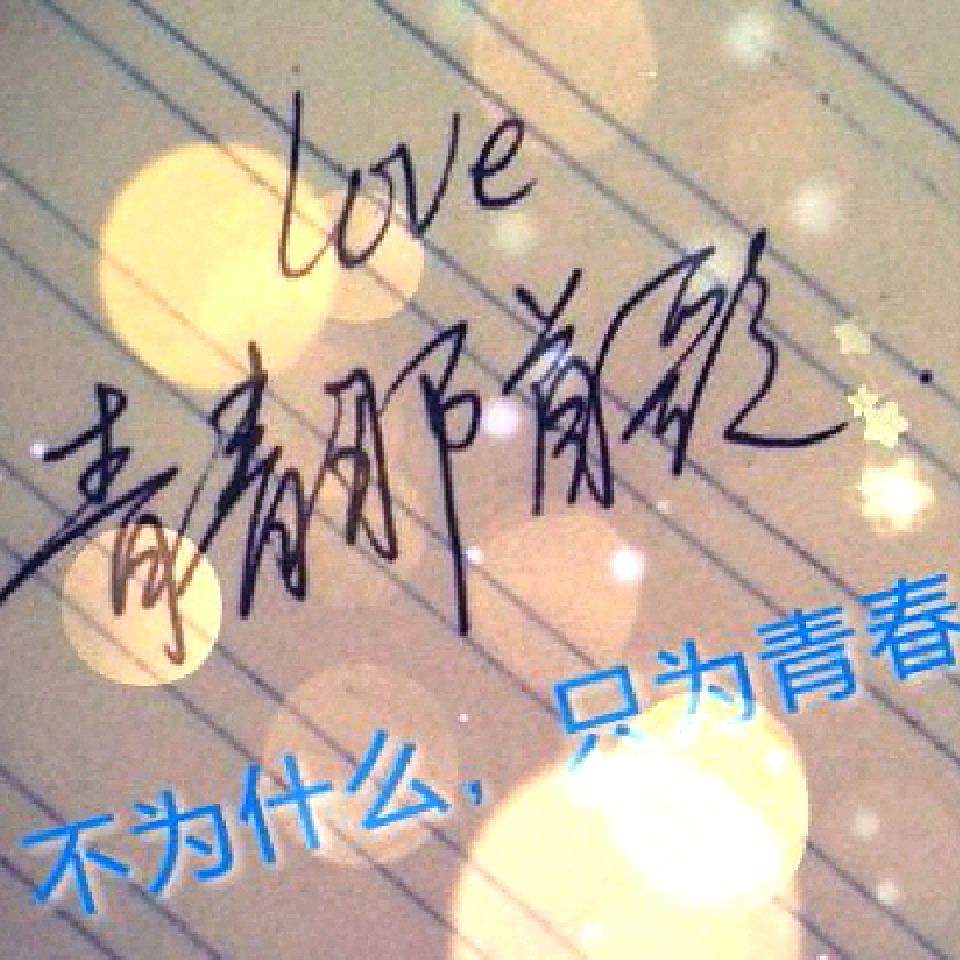 love
青青那首歌.
不为什么，只为青春